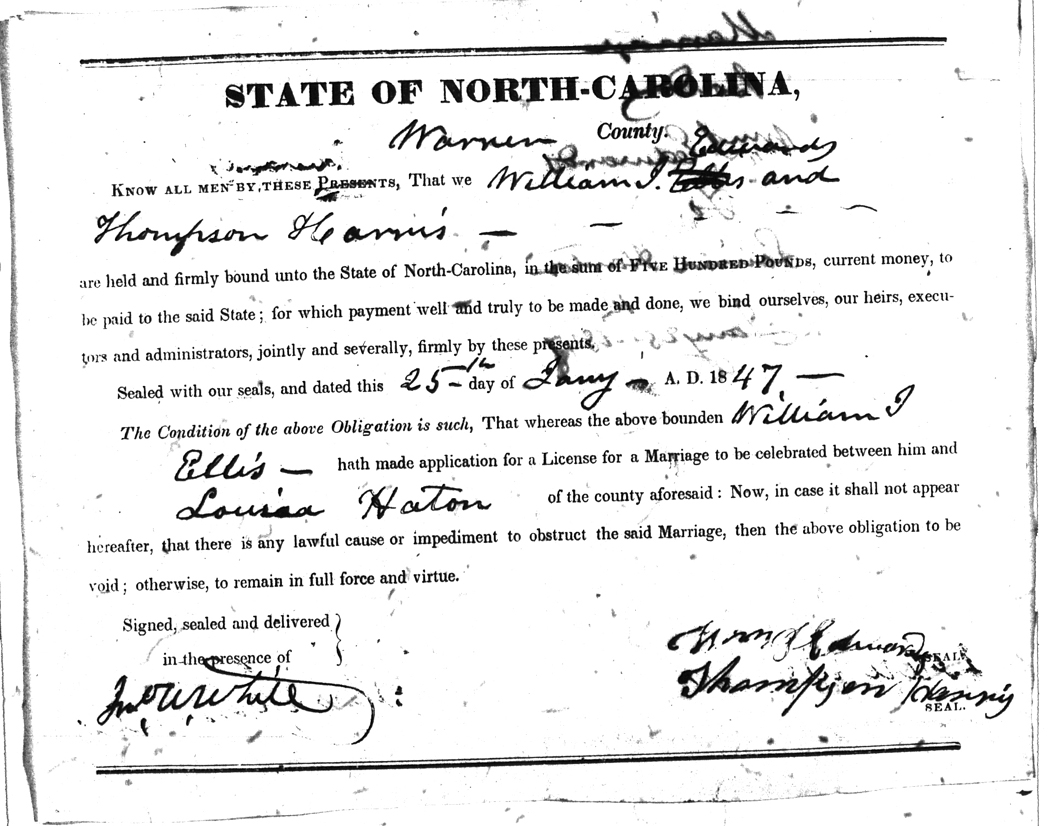 STATE OF NORTH-CAROLINA,
Warren County.
Edwards
KNOW ALL MEN BY THESE PRESENTS, That we William J. Ellis and
Thompson Harris —
are held and firmly bound unto the State of North-Carolina, in the sum of FIVE HUNDRED POUNDS, current money, to
be paid to the said State; for which payment well and truly to be made and done, we bind ourselves, our heirs, execu-
tors and administrators, jointly and severally, firmly by these presents.
Sealed with our seals, and dated this 25th day of Jany A. D. 1847 —
The Condition of the above Obligation is such, That whereas the above bounden William J
Ellis — hath made application for a License for a Marriage to be celebrated between him and
Louisa Haton of the county aforesaid: Now, in case it shall not appear
hereafter, that there is any lawful cause or impediment to obstruct the said Marriage, then the above obligation to be
void; otherwise, to remain in full force and virtue.
Signed, sealed and delivered
in the presence of
Wm J Edwards SEAL.
Jno W White
Thompson Harris
SEAL.